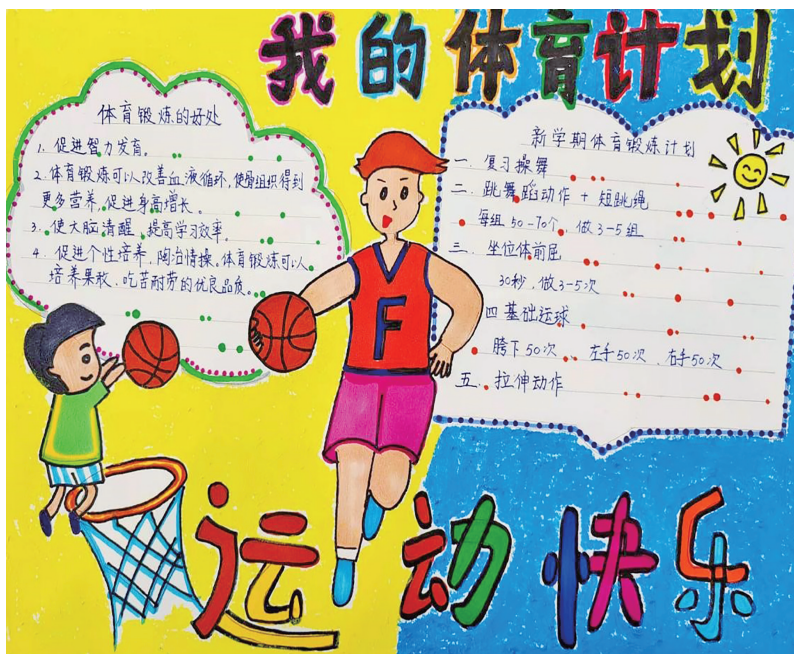 我的体育计划
体育锻炼的好处
1. 促进智力发育。
2. 体育锻炼可以改善血液循环,使骨组织得到
更多营养,促进身高增长。
3. 使大脑清醒,提高学习效率。
4. 促进个性培养,陶冶情操,体育锻炼可以
培养果敢、吃苦耐劳的优良品质。
新学期体育锻炼计划
一. 复习操舞
二. 跳舞蹈动作 + 短跳绳
每组50-70个,做3-5组
三. 坐位体前屈
30秒,做3-5次
四 基础运球
胯下50次、左手50次、右手50次
五、拉伸动作
F
运动快乐